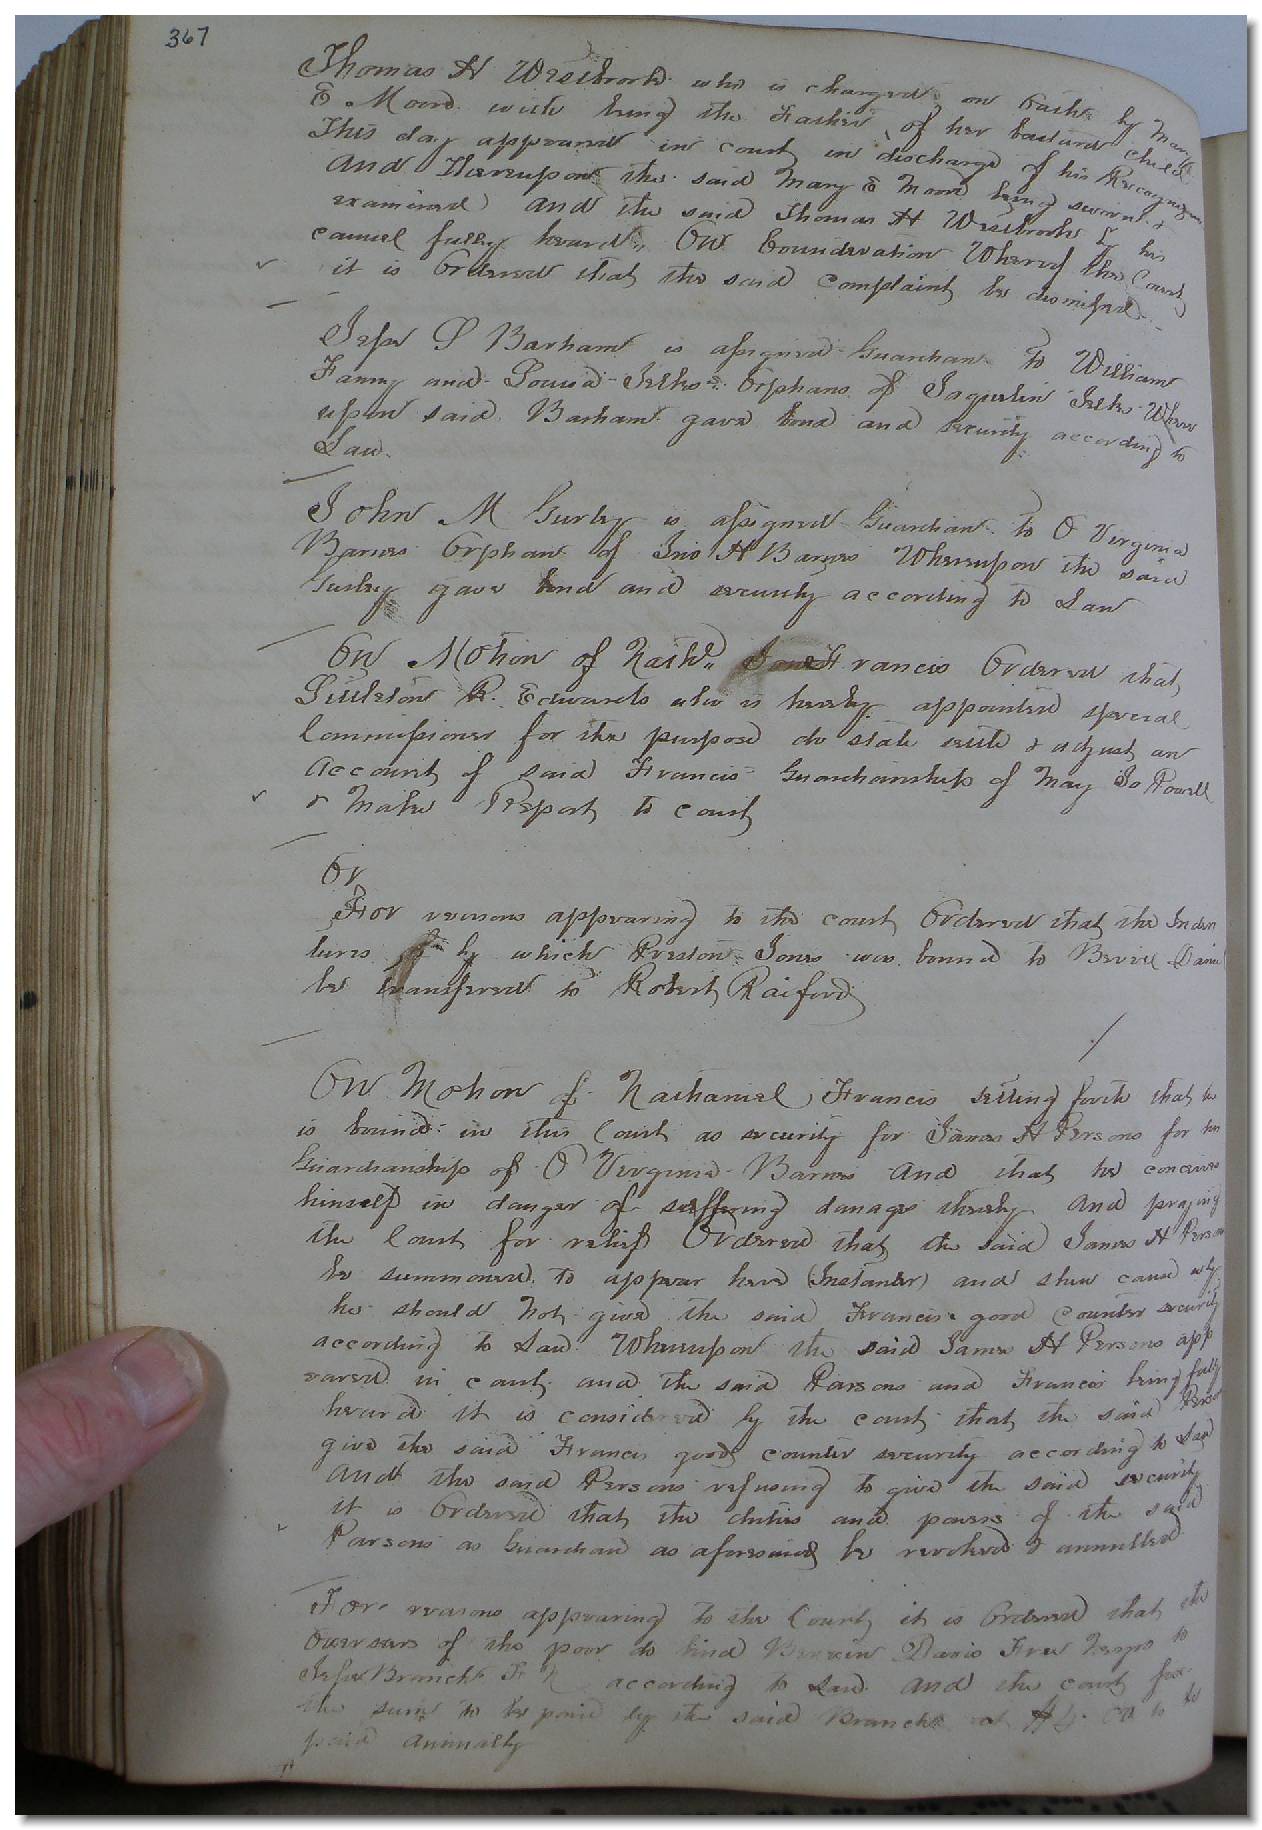 367
Thomas H Westbrook who is charged on oath by Mary
E Moore with being the Father of her bastard child
This day appeared in court in discharge of his Recognizance
And Thereupon the said Mary E Moore being sworn &
examined and the said Thomas H Westbrook by his
council fully heard, On Consideration Whereof the Court
it is Ordered that the said complaint be dismissed.
Jesse S Barham is assigned Guardian to William
Fanny and Louisa Jelks Orphans of Jaquelin Jelks Where
upon said Barham gave bond and security according to
Law.
John M Gurley is assigned Guardian to O Virginia
Barnes Orphan of Jno H Barnes Whereupon the said
Gurley gave bond and security according to Law
On Motion of Nathl. Francis Ordered that
Littleton R. Edwards who is hereby appointed special
Commissioner for the purpose do state settle & adjust an
Account of said Francis Guardianship of May Jo Powell
& Make Report to court
Or
For reasons appearing to the court Ordered that the Inden
tures by which Preston Jones was bound to
be transferred to Robert Raiford
On Motion of Nathaniel Francis setting forth that he
is bound in this Court as security for James H Persons for his
Guardianship of O Virginia Barnes And that he conceives
himself in danger of suffering damage thereby And praying
the Court for relief Ordered that the said James H Persons
be summoned to appear here (Instanter) and shew cause why
he should Not give the said Francis good counter security
according to Law Whereupon the said James H Persons app
eared in court and the said Parsons and Francis being fully
heard it is considered by the court that the said Persons
give the said Francis good counter security according to Law
And the said Persons refusing to give the said security
it is Ordered that the duties and powers of the said
Parsons as Guardian as aforesaid be revoked & annulled
For reasons appearing to the Court it is Ordered that the
Overseers of the poor do bind Davis Free Negro to
Jesse Branch F N according to Law And the court fix
the sum to be paid by the said Branch at to be
paid annually